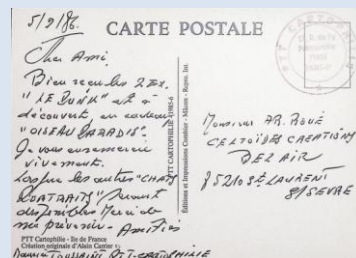 5/9/86.
CARTE POSTALE
Cher Ami.
Bien reçu les 2 Ex.
"LE PUNK" est à
découvert en couleur
"OISEAU PARADIS".
Je vous en remercie
vivement.
Lorsque les autres "CHATS
PORTRAITS" seront
disponibles Merci de
me prévenir. Amitiés
PTT Cartophilie - Ile de France
Création originale d'Alain Carrier
TOUSSAINT PTT-CARTOPHILIE
PTT CARTOPHILIE
Editions et Impressions Combier - Mâcon - Repro. Int.
PTT CARTOPHILIE
PARIS
Monsieur AR. ROUÉ
CELTOÏDES CREATIONS
BEL AIR
85210 St LAURENT
S/SEVRE